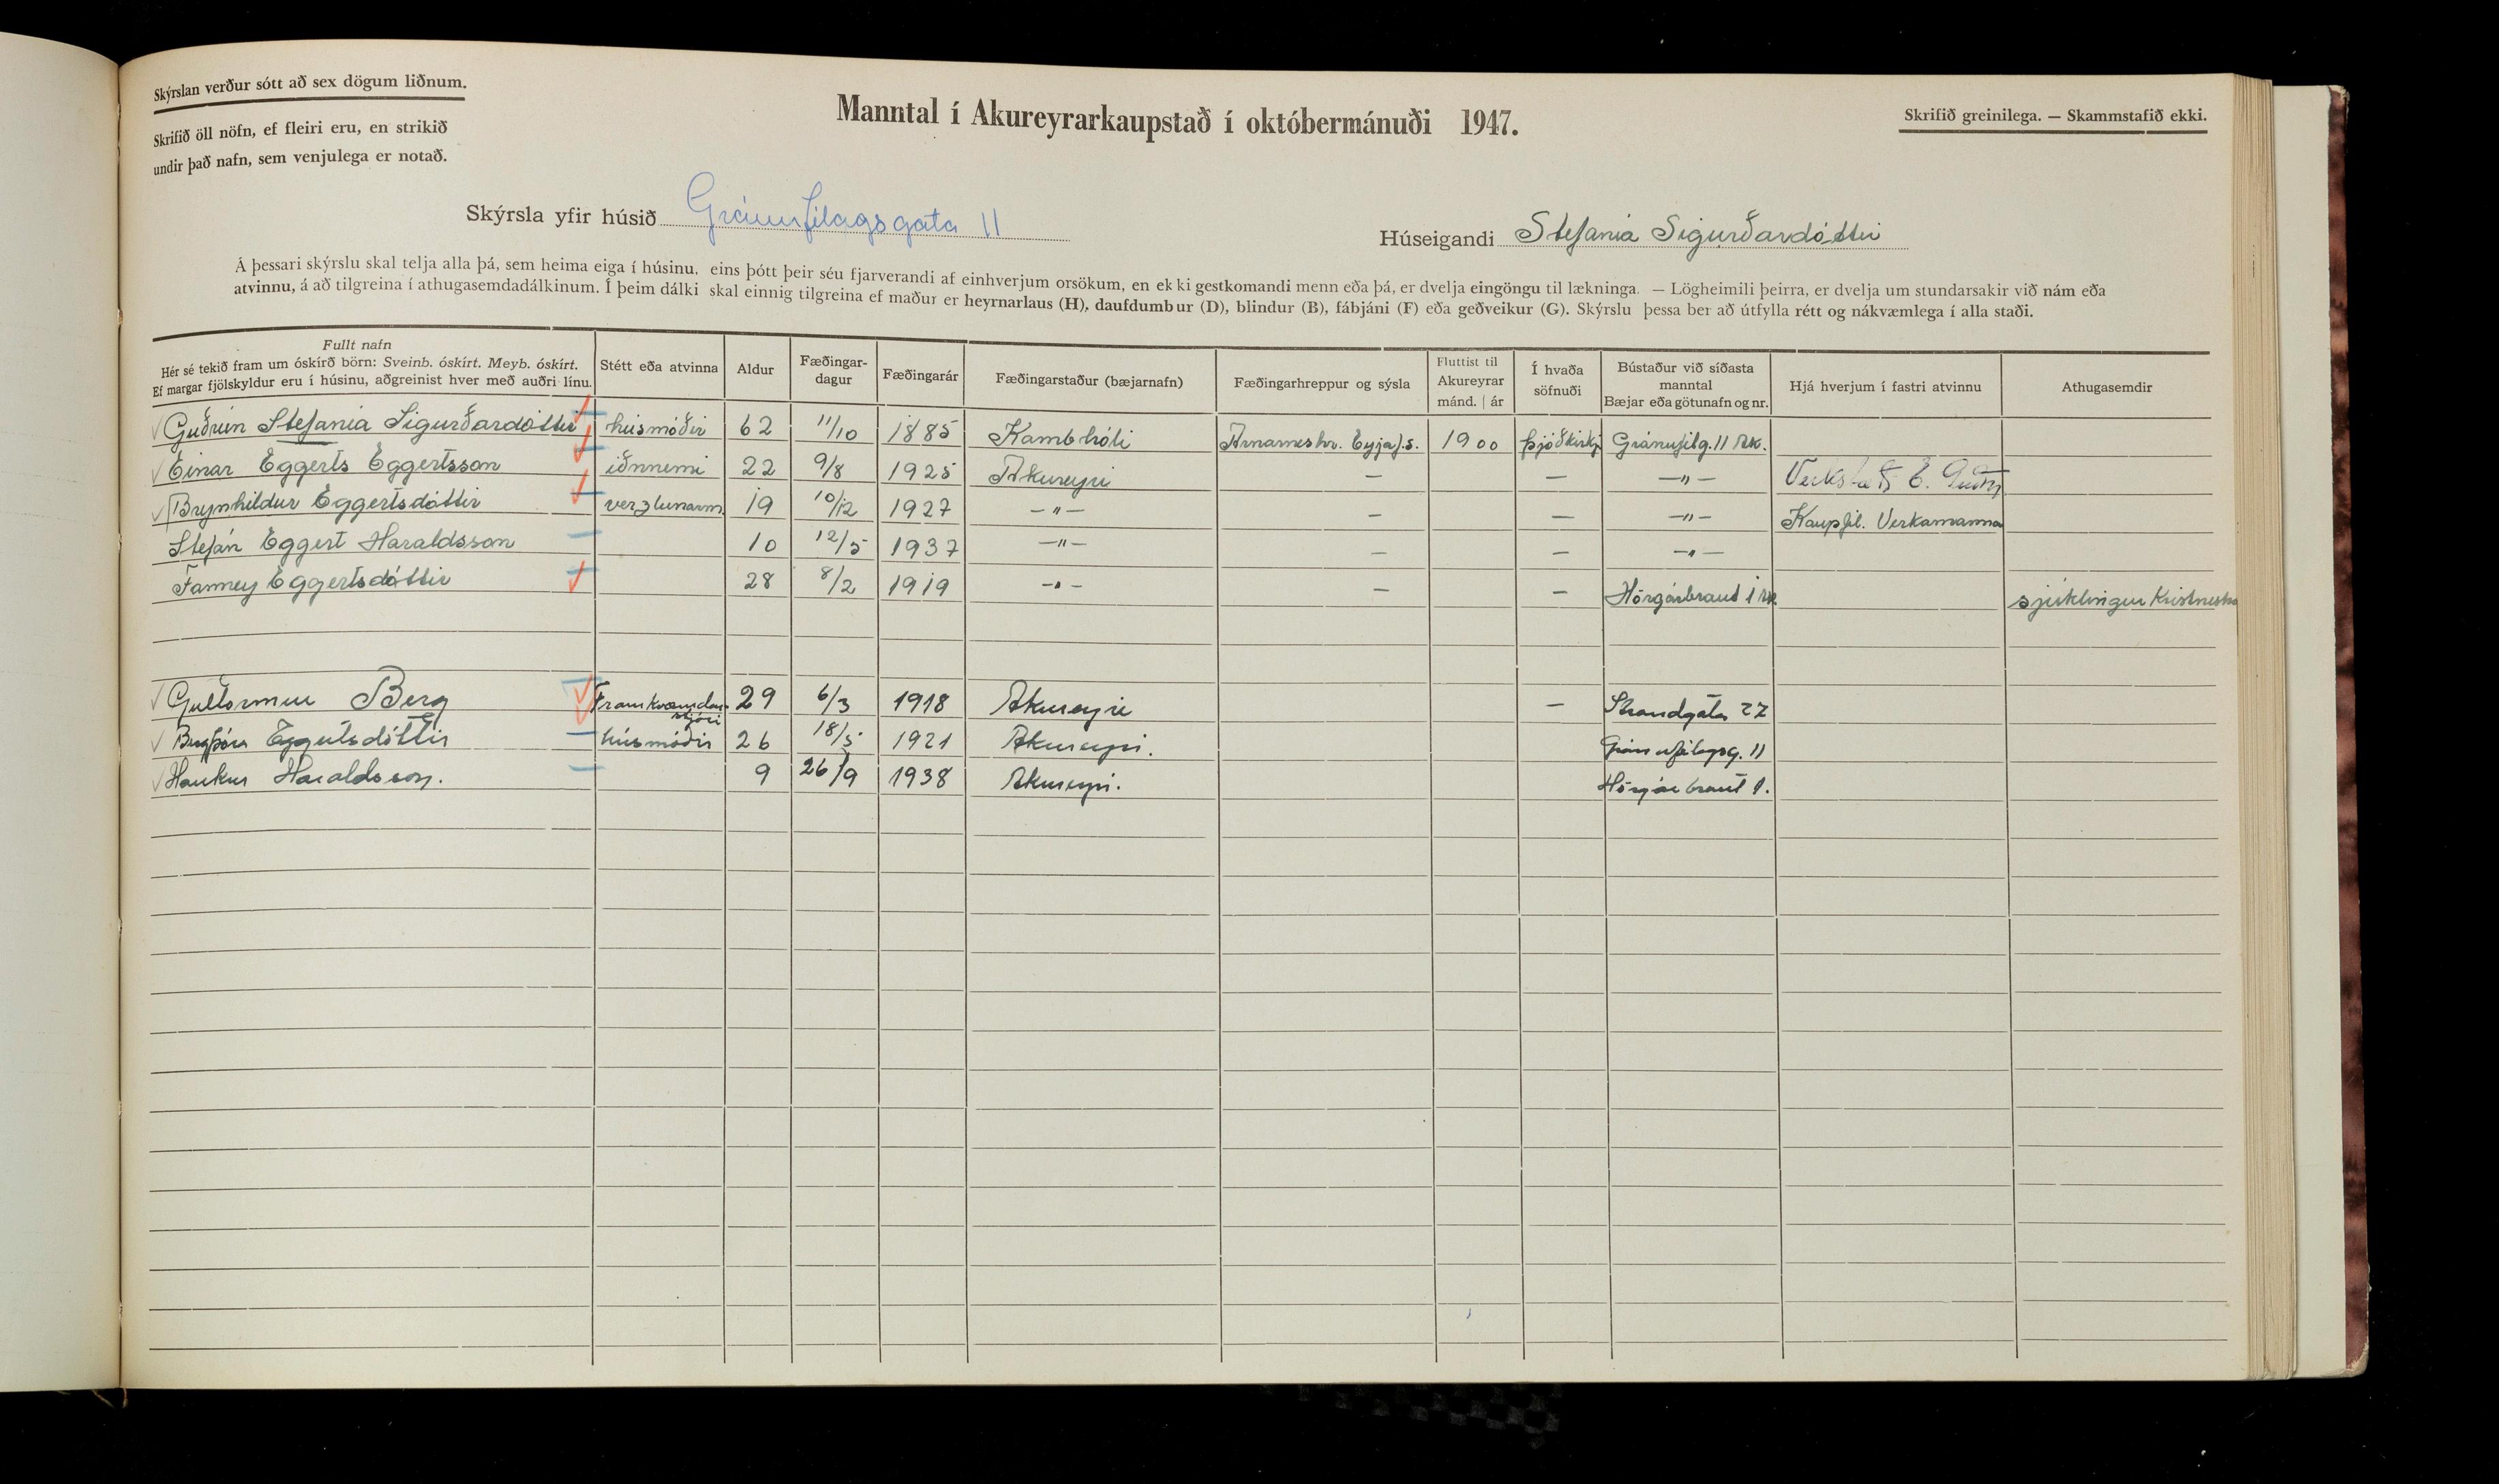 Skýrslan verður sótt að sex dögum liðnum.
Skrifið öll nöfn, ef fleiri eru, en strikið
undir það nafn, sem venjulega er notað.
Manntal í Akureyrarkaupstað í októbermánuði 1947.
Skrifið greinilega. — Skammstafið ekki.
Skýrsla yfir húsið Gránufélagsgata 11
Húseigandi Stefanía Sigurðardóttir
Á þessari skýrslu skal telja alla þá, sem heima eiga í húsinu, eins þótt þeir séu fjarverandi af einhverjum orsökum, en ekki gestkomandi menn eða þá, er dvelja eingöngu til lækninga. — Lögheimili þeirra, er dvelja um stundarsakir við nám eða
atvinnu, á að tilgreina í athugasemdadálkinum. Í þeim dálki skal einnig tilgreina ef maður er heyrnarlaus (H), daufdumbur (D), blindur (B), fábjáni (F) eða geðveikur (G). Skýrslu þessa ber að útfylla rétt og nákvæmlega í alla staði.
Fullt nafn
Hér sé tekið fram um óskírð börn: Sveinb. óskírt. Meyb. óskírt.
Ef margar fjölskyldur eru í húsinu, aðgreinist hver með auðri línu.
Stétt eða atvinna
Aldur
Fæðingar-
dagur
Fæðingarár
Fæðingarstaður (bæjarnafn)
Fæðingarhreppur og sýsla
Fluttist til
Akureyrar
mánd. | ár
Í hvaða
söfnuði
Bústaður við síðasta
manntal
Bæjar eða götunafn og nr.
Hjá hverjum í fastri atvinnu
Athugasemdir
Guðrún Stefanía Sigurðardóttir húsmóðir 62 11/10 1885 Kambhóli Arnarneshr. Eyjaf.s. 1900 Þjóðkirkj Gránufélg. 11 Ak.
Einar Eggerts Eggertsson iðnnemi 22 9/8 1925 Akureyri — — —"— E.
Brynhildur Eggertsdóttir verzlunarm. 19 10/12 1927 —"— — — —"— Kaupfél. Verkamanna
Stefán Eggert Haraldsson 10 12/5 1937 —"— — — —"—
Fanney Eggertsdóttir 28 8/2 1919 —"— — — Hörgárbraut 1 Ak. sjúklingur Kristnesh
Guttormur Berg Framkvæmdar-
stjóri 29 6/3 1918 Akureyri — Strandgata 27
Bergþóra Eggertsdóttir húsmóðir 26 18/5 1921 Akureyri. Gránufélagsg. 11
Haukur Haraldsson. 9 26/9 1938 Akureyri. Hörgárbraut 1.